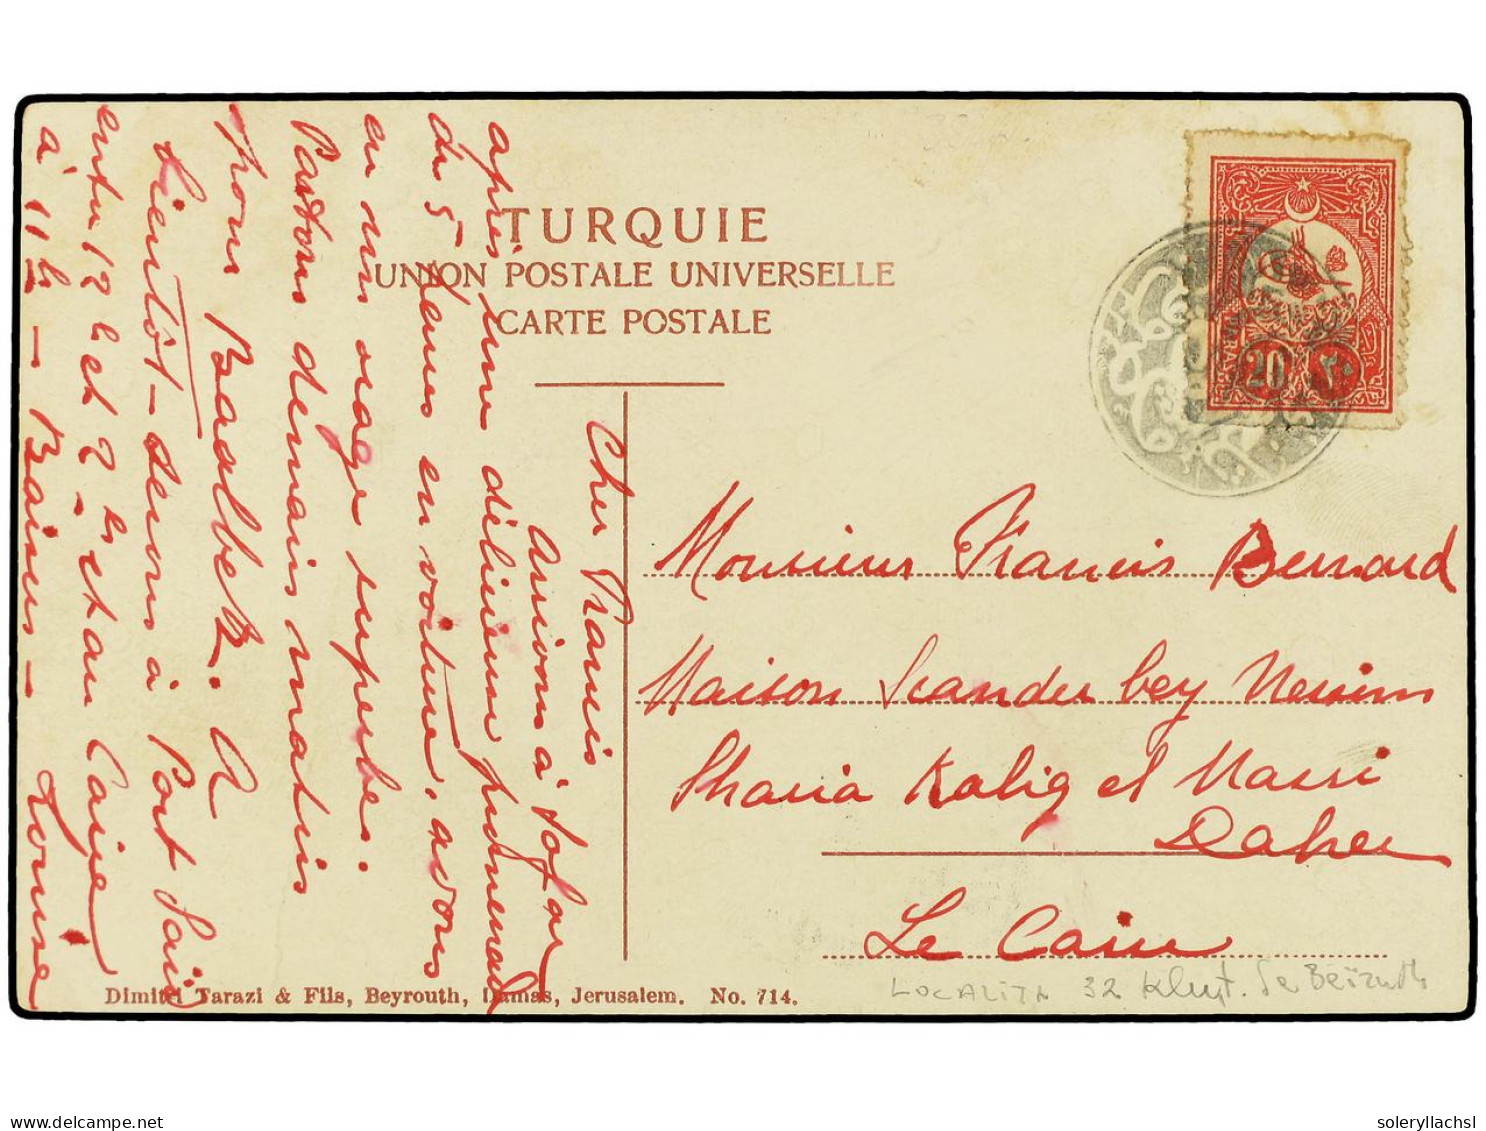 TURQUIE
UNION POSTALE UNIVERSELLE
CARTE POSTALE
20 ٢٠
Cher Francis
Arrivons à Sofar
après une délicieuse promenade
de 5 heures en voiture, avons
eu un orage superbe.
Partons demain matin
pour Baalbek. A
bientôt - serons à Port Said
entre 12 h et 2 - et au Caire
à 11 h - Baisers - Louise
Monsieur Francis Bernard
Maison Scander bey Nessim
Sharia Kalig el Nasri
Daher
Le Caire
Dimitri Tarazi & Fils, Beyrouth, Damas, Jerusalem. No. 714.
LOCALITA 32 de Beirut
soleryllachsl